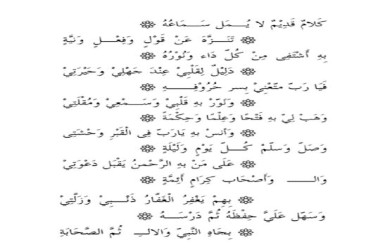 كَلَامٌ قَدِيْمٌ لَا يُمَلُ سَمَاعُهُ ۞
۞ تَنَزَّهَ عَنْ قَوْلٍ وَفِعْلٍ وَنِيَّةٍ
بِهِ أَشْتَفِى مِنْ كُلِّ دَاءٍ وَنُوْرُهُ ۞
۞ دَلِيْلٌ لِقَلْبِيْ عِنْدَ جَهْلِيْ وَحَيْرَتِيْ
فَيَا رَبِّ مَتِّعْنِيْ بِسِرِّ حُرُوْفِهِ ۞
۞ وَنَوِّرْ بِهِ قَلْبِيْ وَسَمْعِيْ وَمُقْلَتِيْ
وَهَبْ لِيْ بِهِ فَتْحًا وَعِلْمًا وَحِكْمَةً ۞
۞ وَآنِسْ بِهِ يَارَبِّ فِى الْقَبْرِ وَحْشَتِيْ
وَصَلِّ وَسَلِّمْ كُلَّ يَوْمٍ وَلَيْلَةٍ ۞
۞ عَلَى مَنْ بِهِ الرَّحْمٰنُ يَقْبَلُ دَعْوَتِيْ
وَالـــ وَأَصْحَابٍ كِرَامٍ أَئِمَّةٍ ۞
۞ بِهِمْ يَغْفِرُ الْغَفَّارُ ذَنْبِيْ وَزَلَّتِيْ
وَسَهِّلْ عَلَيَّ حِفْظَهُ ثُمَّ دَرْسَهُ ۞
۞ بِجَاهِ النَّبِيْ وَالالِ ثُمَّ الصَّحَابَةِ